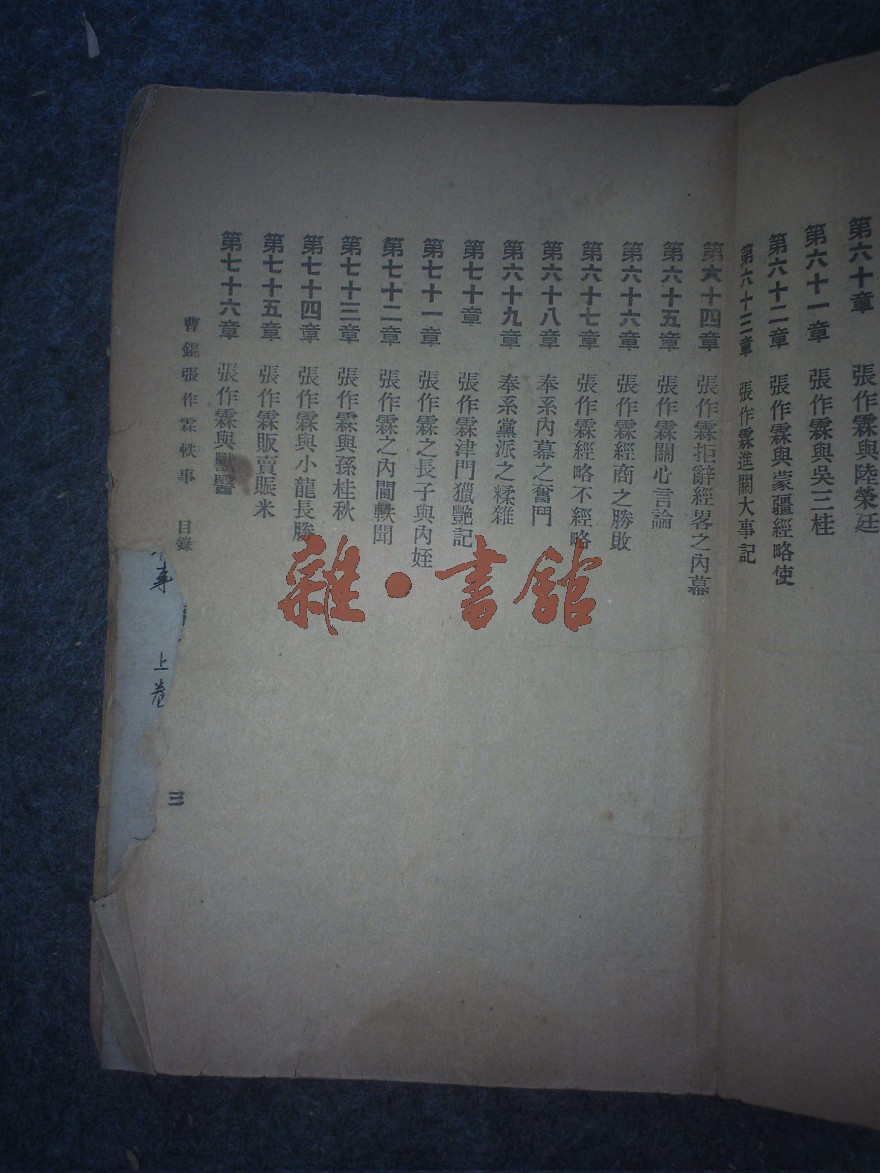 第六十章 張作霖與陸榮廷
第六十一章 張作霖與吳三桂
第六十二章 張作霖與蒙疆經略使
第六十三章 張作霖進關大事記
第六十四章 張作霖拒辭經畧之內幕
第六十五章 張作霖關心言論
第六十六章 張作霖經商之勝敗
第六十七章 張作霖經略不經略
第六十八章 奉系內幕之奮鬥
第六十九章 奉系黨派之糅雜
第七十章 張作霖津門獵艷記
第七十一章 張作霖之長子與內姪
第七十二章 張作霖之內閫軼聞
第七十三章 張作霖與孫桂秋
第七十四章 張作霖與小龍長勝
第七十五章 張作霖販賣賑米
第七十六章 張作霖與獸醫
曹錕張作霖軼事 目錄
三
上卷
雜·書館